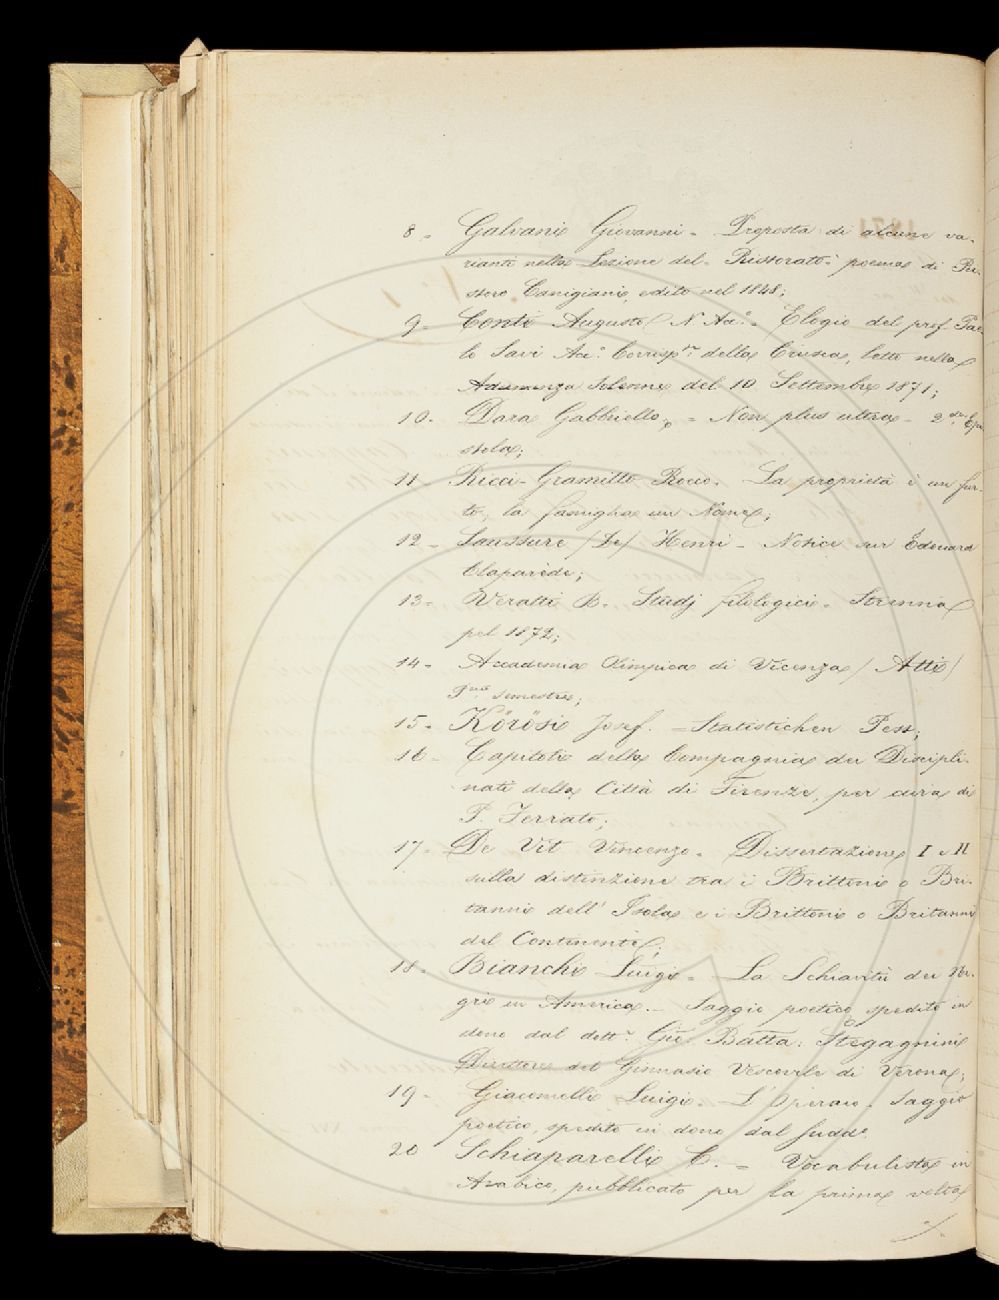 8 - Galvani Giovanni - Proposta di alcune va-
rianti nella Lezione del "Ristorato" poema di Ri-
storo Canigiani, edito nel 1848;
9 - Conti Augusto (N. Acc.° - Elogio del prof. Pao-
lo Savi Acc.° Corrisp.te della Crusca, letto nella
Adunanza Solenne del 10 Settembre 1871;
10 - Dara Gabbriello - Non plus ultra - 2.da Epi
stola;
11 - Ricci-Gramitto Rocco - La proprietà è un fur-
to; la famiglia un Nome;
12 - Saussure (De) Henri - Notice sur Édouard
Claparède;
13 - Veratti B. - Studj filologici - Strenna
pel 1872;
14 - Accademia Olimpica di Vicenza (Atti)
semestre;
15 - Körösi Josef. - Statistichen Pest;
16 - Capitoli della Compagnia dei Discipli-
nati della Città di Firenze, per cura di
P. Ferrato;
17 - De Vit Vincenzo - Dissertazione I e II
sulla distinzione tra i Brittoni o Bri-
tanni dell' Isola e i Brittoni o Britanni
del Continente;
18 - Bianchi Luigi - La Schiavitù dei Ne-
gri in America - Saggio poetico spedito in
dono dal dott.r Gio: Batta: Stegagnini
Direttore del Ginnasio Vescovile di Verona;
19 - Giacomelli Luigi - L'Operaio - Saggio
poetico, spedito in dono dal sudd.°
20 Schiaparelli C. - Vocabulista in
Arabico, pubblicato per la prima volta